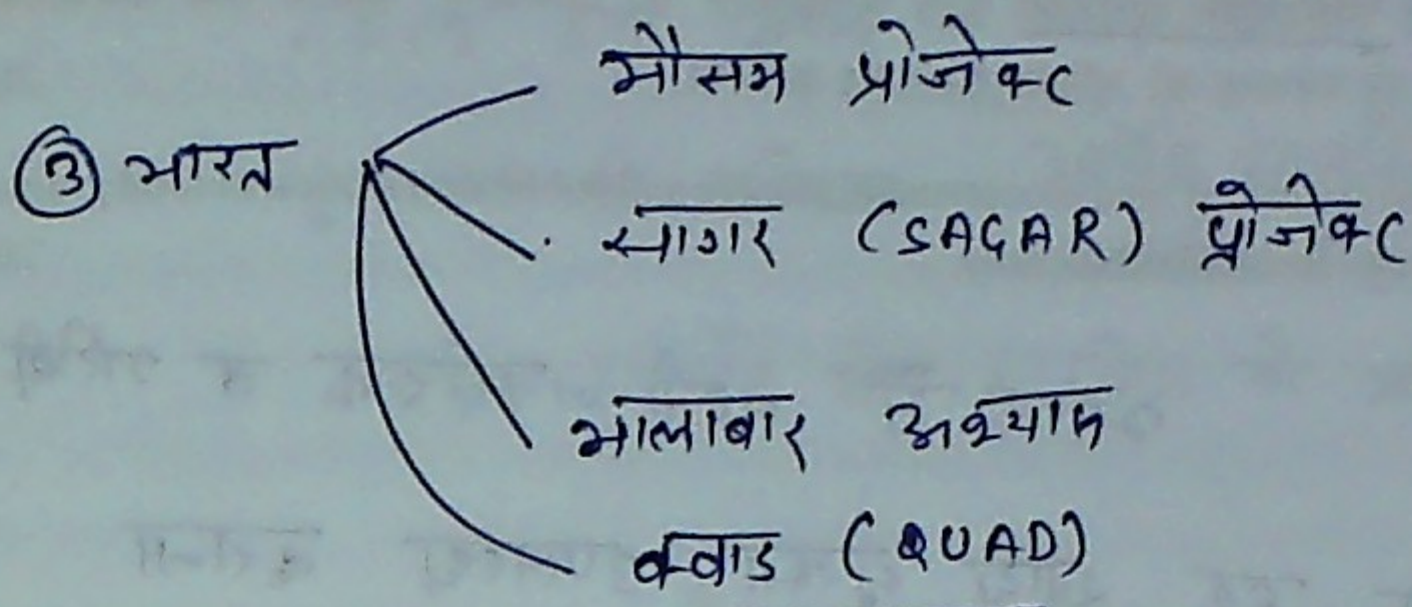 मौसम प्रोजेक्ट
③ भारत
सागर (SAGAR) प्रोजेक्ट
मालाबार अभ्यास
क्वाड (QUAD)